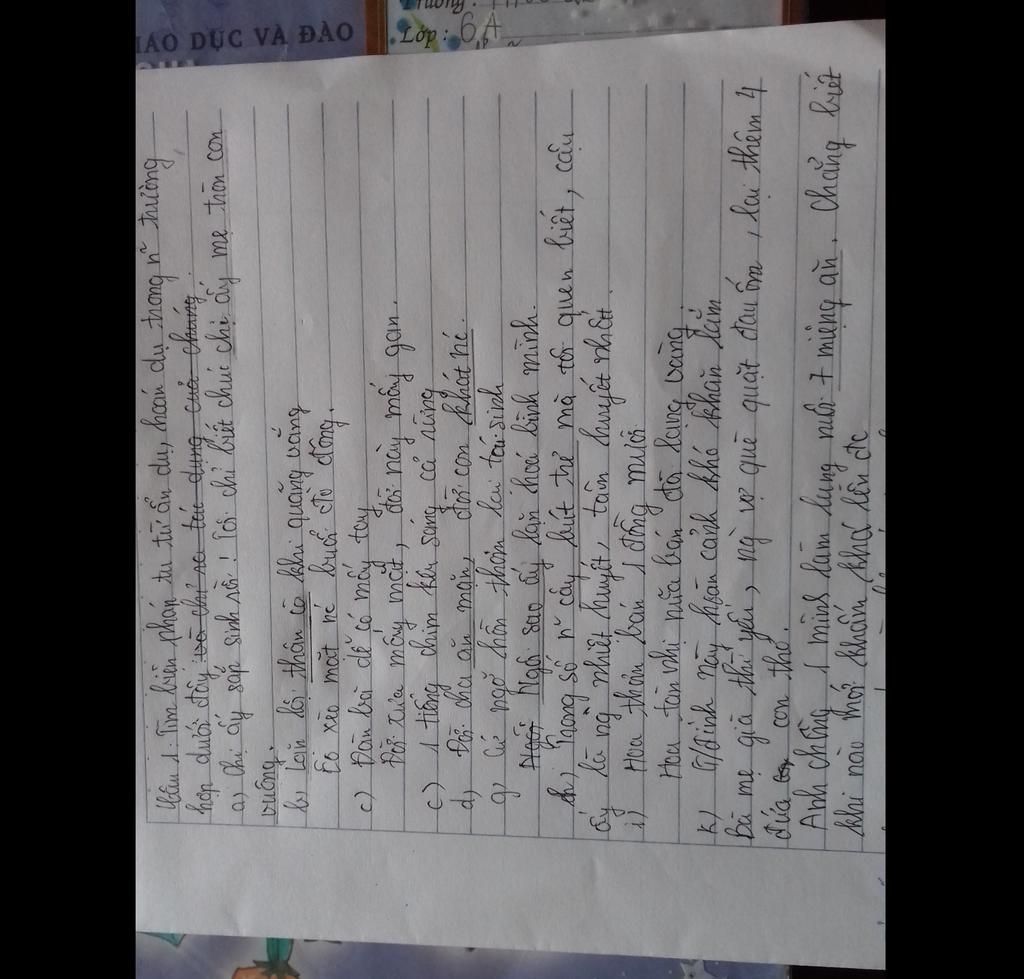 IÁO DỤC VÀ ĐÀO
Trường :
Lớp : 6A
Câu 1. Tìm biện pháp tu từ ẩn dụ, hoán dụ trong n~ trường
hợp dưới đây và chỉ ra tác dụng của chúng.
a) Chị ấy sắp sinh rồi ! Tôi chỉ biết chúc chị ấy mẹ tròn con
vuông.
b) Lặn lội thân cò khi quãng vắng
Eo xèo mặt nc buổi đò đông.
c) Đàn bà dễ có mấy tay
Đời xưa mấy mặt, đời này mấy gan.
c) 1 tiếng chim kêu sáng cả rừng
d) Đời cha ăn mặn, đời con khát nc.
g) Cứ ngỡ hồn thơm tái sinh
Ngôi Ngôi sao ấy lặn hoá bình minh.
h) Trong số n~ cây bút trẻ mà tôi quen biết, cậu
ấy là ng nhiệt huyết, tâm huyết nhất.
i) Hoa thơm bán 1 đồng mười
Hoa tàn nhị rữa bán đôi lạng vàng.
k) G/đình này hoàn cảnh khó khăn lắm
Bà mẹ già thì yếu, ng vợ quặt quẹo đau ốm, lại thêm 4
đứa con thơ.
Anh chồng 1 mình làm lụng nuôi 7 miệng ăn. Chẳng biết
khi nào mới khấm khá lên đc